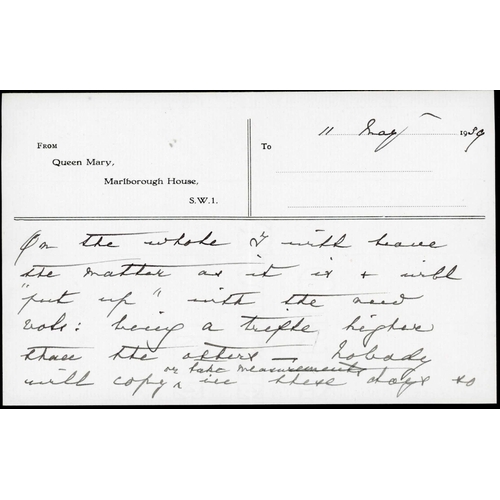 From
Queen Mary,
Marlborough House,
S.W.1.
To
11 May 1939
On the whole I will leave
the matter as it is & will
"put up" with the new
vols: being a trifle higher
than the others — Nobody
or take measurements
will copy, in these days so